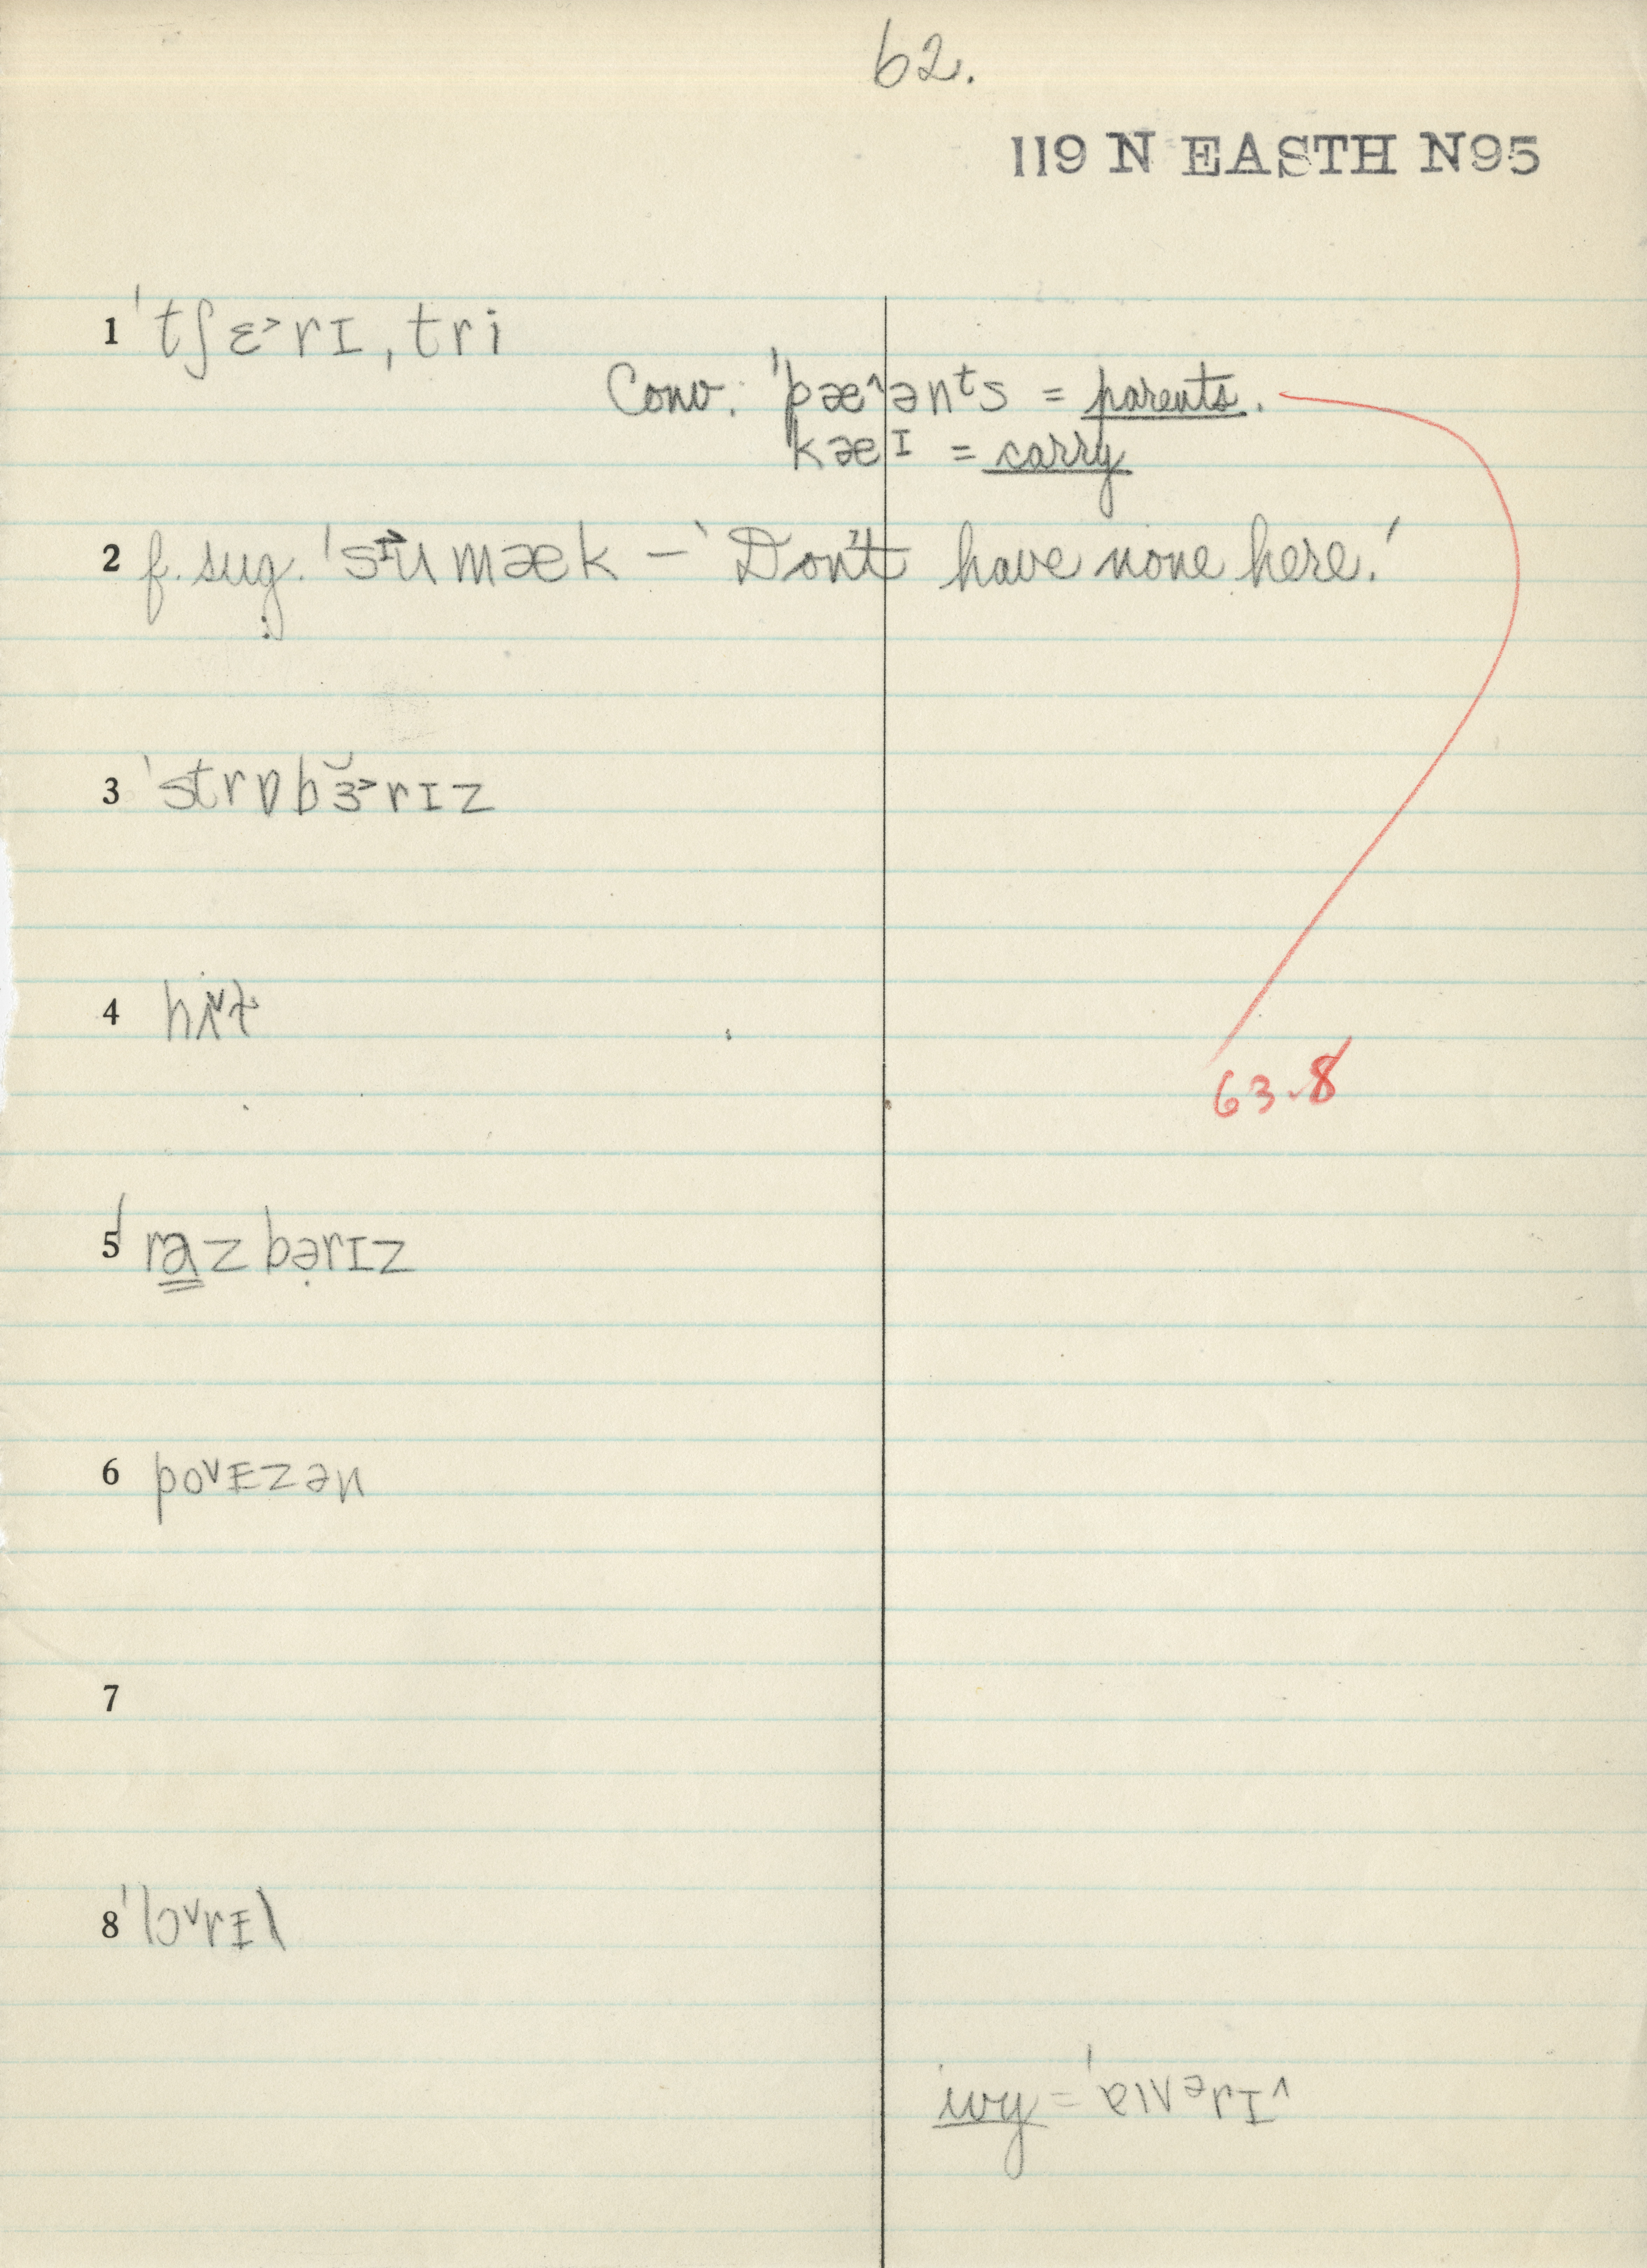 62.
119 N EASTH N95
1 ˈtʃɛ˃rɪ, tri
Conv. ˈpæ^ənᵗs = parents.
kæɪ = carry
2 f. sug. ˈsɪ˃umæk – 'Don't have none here.'
3 ˈstrɒbɜ̆˃rɪz
63.8
5 ˈrazbərɪz
6 poᵛɪzən
7
8 ˈlɔᵛrɪl
ivy = ˈaɪvərɪ^